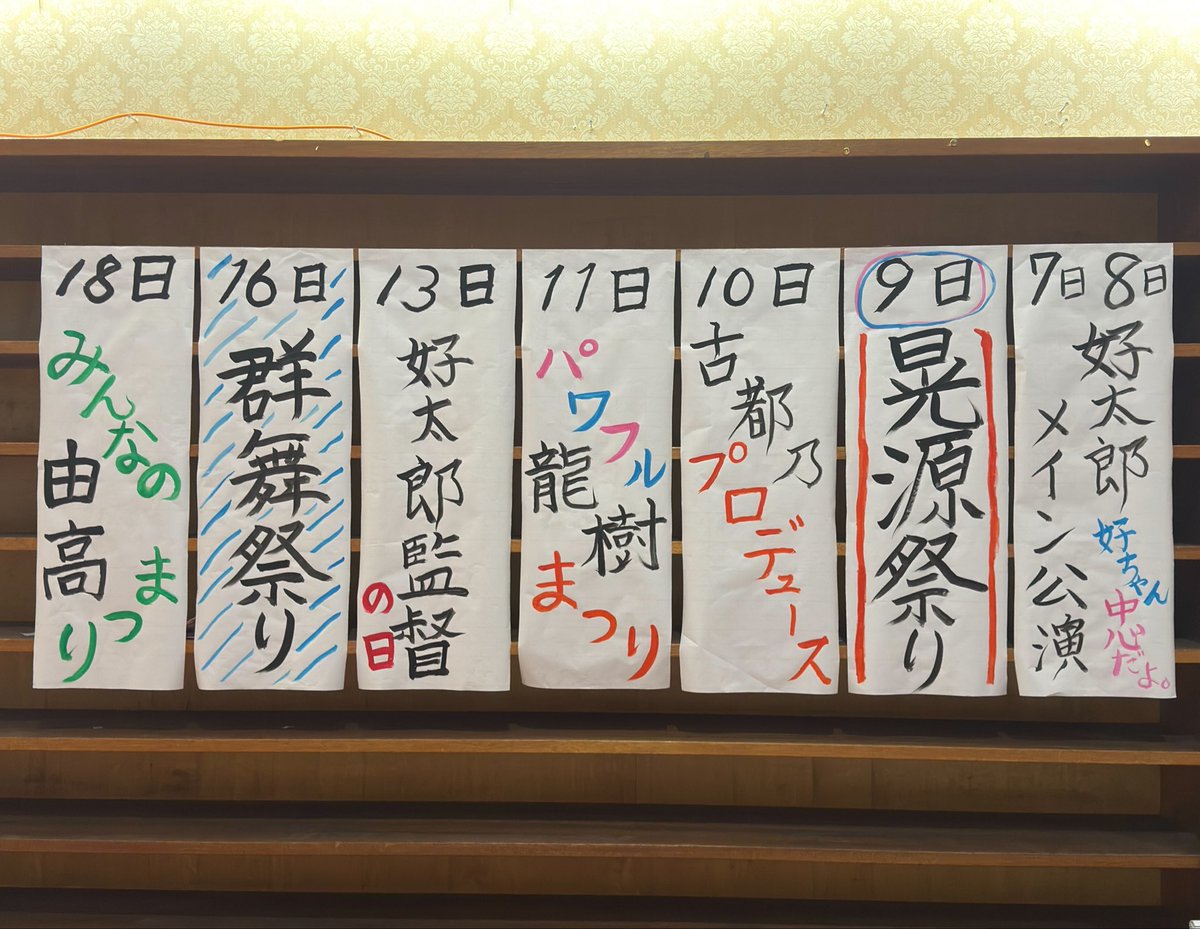 7日 8日
好太郎
好ちゃん
中心だよ。
メイン公演
9日
晃源祭り
10日
古都乃
プロデュース
11日
パワフル
龍樹
まつり
13日
好太郎監督
の日
16日
群舞祭り
18日
みんなの
由高
まつり